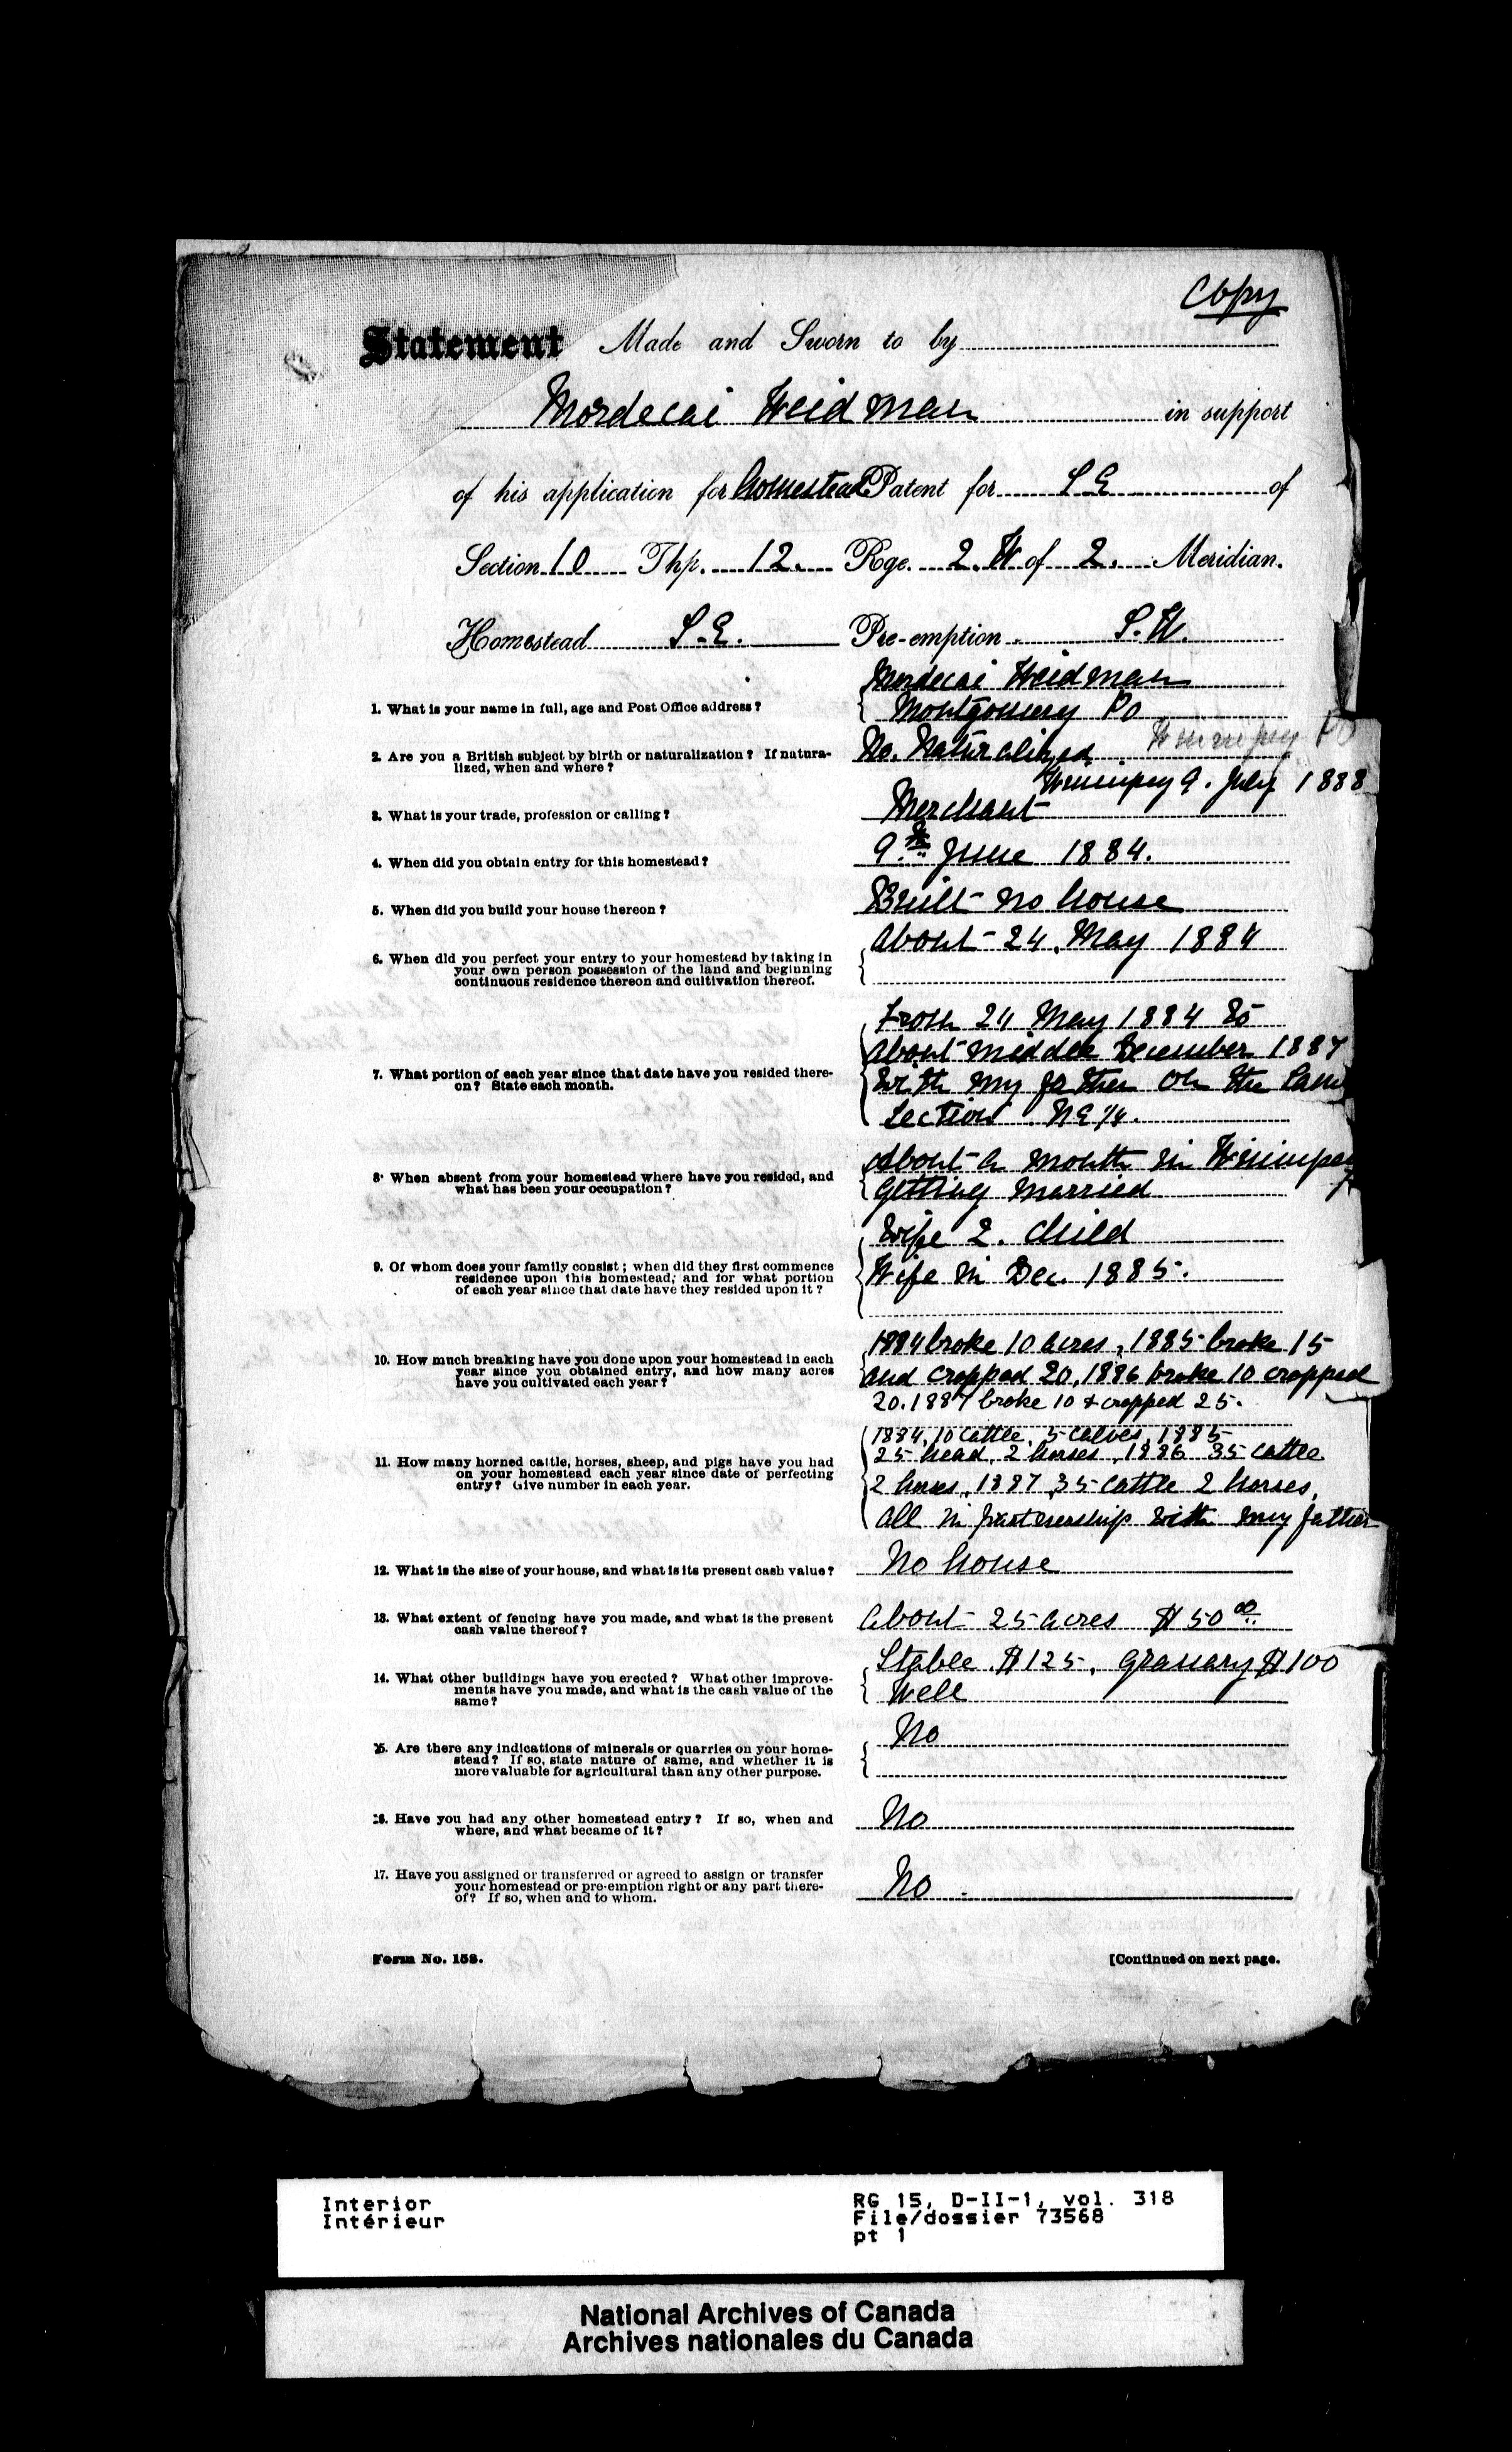 Copy
Statement Made and Sworn to by
Mordecai Weidman in support
of his application for homestead Patent for S E of
Section 10 Thp. 12. Rge. 2. W of 2. Meridian.
Homestead S.E. Pre-emption S.W.
1. What is your name in full, age and Post Office address?
Mordecai Weidman
Montgomery PO
Winnipeg PO
2. Are you a British subject by birth or naturalization? If natura-
lized, when and where?
No. Naturalized
Winnipeg 9. July 1888
3. What is your trade, profession or calling?
Merchant
4. When did you obtain entry for this homestead?
9.th June 1884.
5. When did you build your house thereon?
Built no house
6. When did you perfect your entry to your homestead by taking in
your own person possession of the land and beginning
continuous residence thereon and cultivation thereof.
About 24. May 1884
7. What portion of each year since that date have you resided there-
on? State each month.
From 24 May 1884 to
about middle December 1887
with my father on the Same
Section NE 1/4.
8. When absent from your homestead where have you resided, and
what has been your occupation?
About a month in Winnipeg
getting married
9. Of whom does your family consist; when did they first commence
residence upon this homestead; and for what portion
of each year since that date have they resided upon it?
Wife 2. child
Wife in Dec. 1885.
10. How much breaking have you done upon your homestead in each
year since you obtained entry, and how many acres
have you cultivated each year?
1884 broke 10 acres, 1885 broke 15
and cropped 20, 1886 broke 10 cropped
20. 1887 broke 10 & cropped 25.
11. How many horned cattle, horses, sheep, and pigs have you had
on your homestead each year since date of perfecting
entry? Give number in each year.
1884, 10 cattle, 5 calves, 1885
25 head, 2 horses, 1886 35 cattle
2 horses, 1887, 35 cattle 2 horses,
all in partnership with my father
12. What is the size of your house, and what is its present cash value?
No house
13. What extent of fencing have you made, and what is the present
cash value thereof?
About 25 acres $50 00
14. What other buildings have you erected? What other improve-
ments have you made, and what is the cash value of the
same?
Stable $125, granary $100
Well
15. Are there any indications of minerals or quarries on your home-
stead? If so, state nature of same, and whether it is
more valuable for agricultural than any other purpose.
No
16. Have you had any other homestead entry? If so, when and
where, and what became of it?
No
17. Have you assigned or transferred or agreed to assign or transfer
your homestead or pre-emption right or any part there-
of? If so, when and to whom.
No
Form No. 158.
[Continued on next page.
Interior
Intérieur
RG 15, D-II-1, vol. 318
File/dossier 73568
pt 1
National Archives of Canada
Archives nationales du Canada